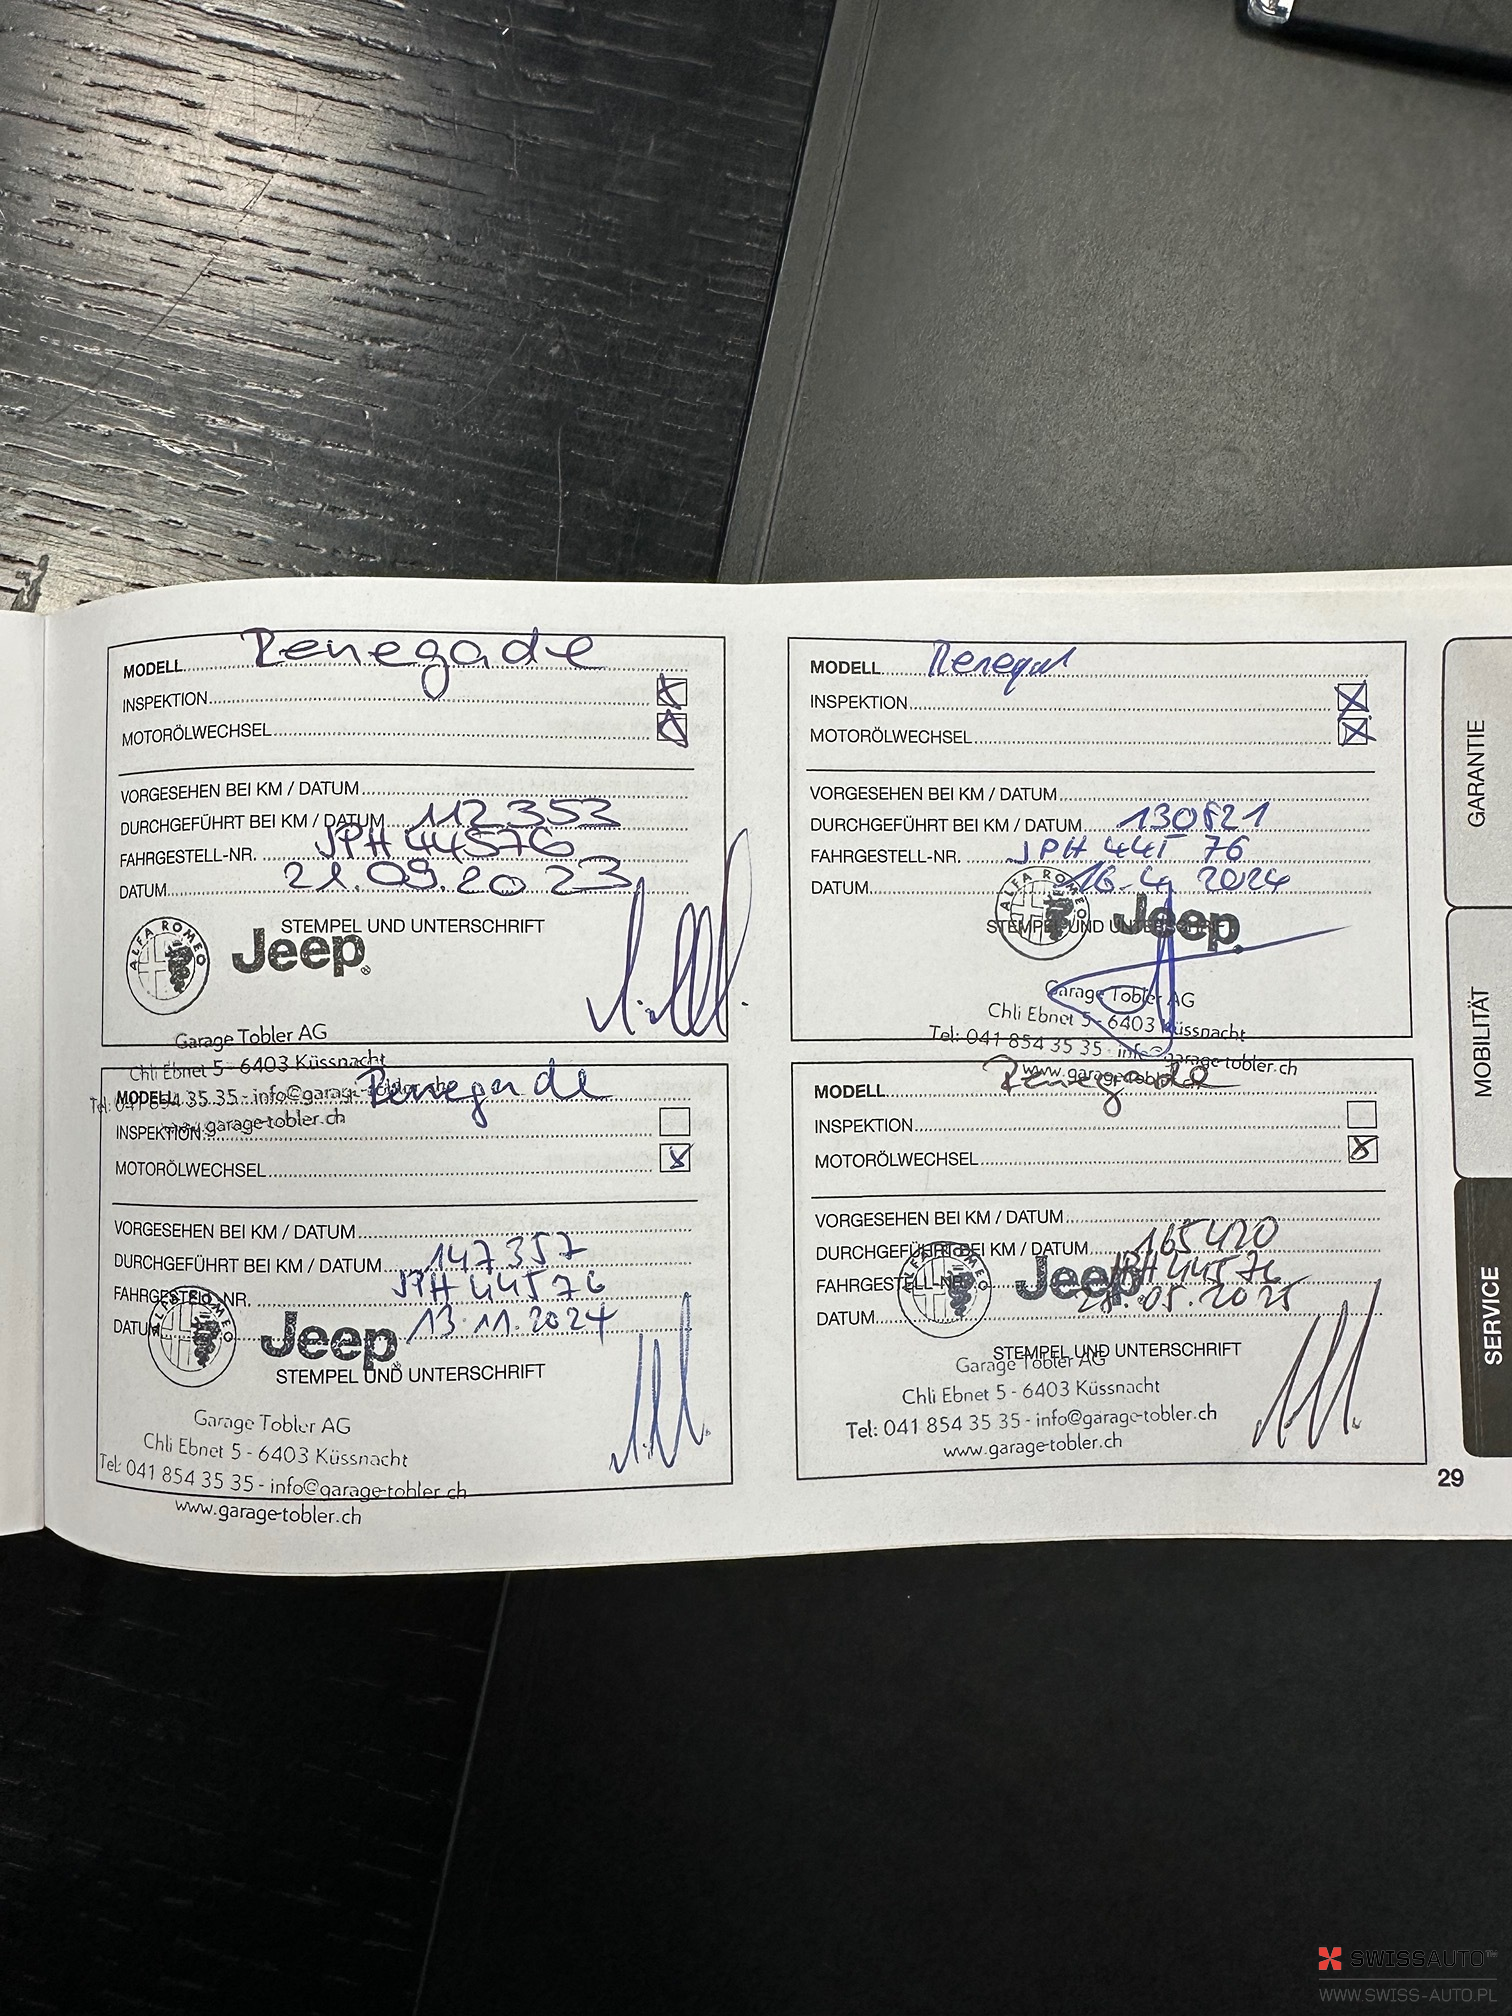 MODELL Renegade
INSPEKTION
MOTORÖLWECHSEL
VORGESEHEN BEI KM / DATUM
DURCHGEFÜHRT BEI KM / DATUM 112353
FAHRGESTELL-NR. JPH44576
DATUM 21.09.2023
STEMPEL UND UNTERSCHRIFT
ALFA ROMEO Jeep®
Garage Tobler AG
Chli Ebnet 5 - 6403 Küssnacht
Tel: 041 854 35 35 - info@garage-tobler.ch
www.garage-tobler.ch
MODELL
INSPEKTION
MOTORÖLWECHSEL
VORGESEHEN BEI KM / DATUM
DURCHGEFÜHRT BEI KM / DATUM
FAHRGESTELL-NR. JPH
DATUM 16.4 2024
STEMPEL UND UNTERSCHRIFT
ALFA ROMEO Jeep®
Garage Tobler AG
Chli Ebnet 5 - 6403 Küssnacht
Tel: 041 854 35 35 - info@garage-tobler.ch
www.garage-tobler.ch
MODELL Renegade
INSPEKTION
MOTORÖLWECHSEL
VORGESEHEN BEI KM / DATUM
DURCHGEFÜHRT BEI KM / DATUM 147357
FAHRGESTELL-NR. JPH44576
DATUM 13.11.2024
ALFA ROMEO Jeep®
STEMPEL UND UNTERSCHRIFT
Garage Tobler AG
Chli Ebnet 5 - 6403 Küssnacht
Tel: 041 854 35 35 - info@garage-tobler.ch
www.garage-tobler.ch
MODELL Renegade
INSPEKTION
MOTORÖLWECHSEL
VORGESEHEN BEI KM / DATUM
DURCHGEFÜHRT BEI KM / DATUM 165420
FAHRGESTELL-NR. JPH44576
DATUM
ALFA ROMEO Jeep®
STEMPEL UND UNTERSCHRIFT
Garage Tobler AG
Chli Ebnet 5 - 6403 Küssnacht
Tel: 041 854 35 35 - info@garage-tobler.ch
www.garage-tobler.ch
GARANTIE
MOBILITÄT
SERVICE
29
SWISSAUTO™
WWW.SWISS-AUTO.PL